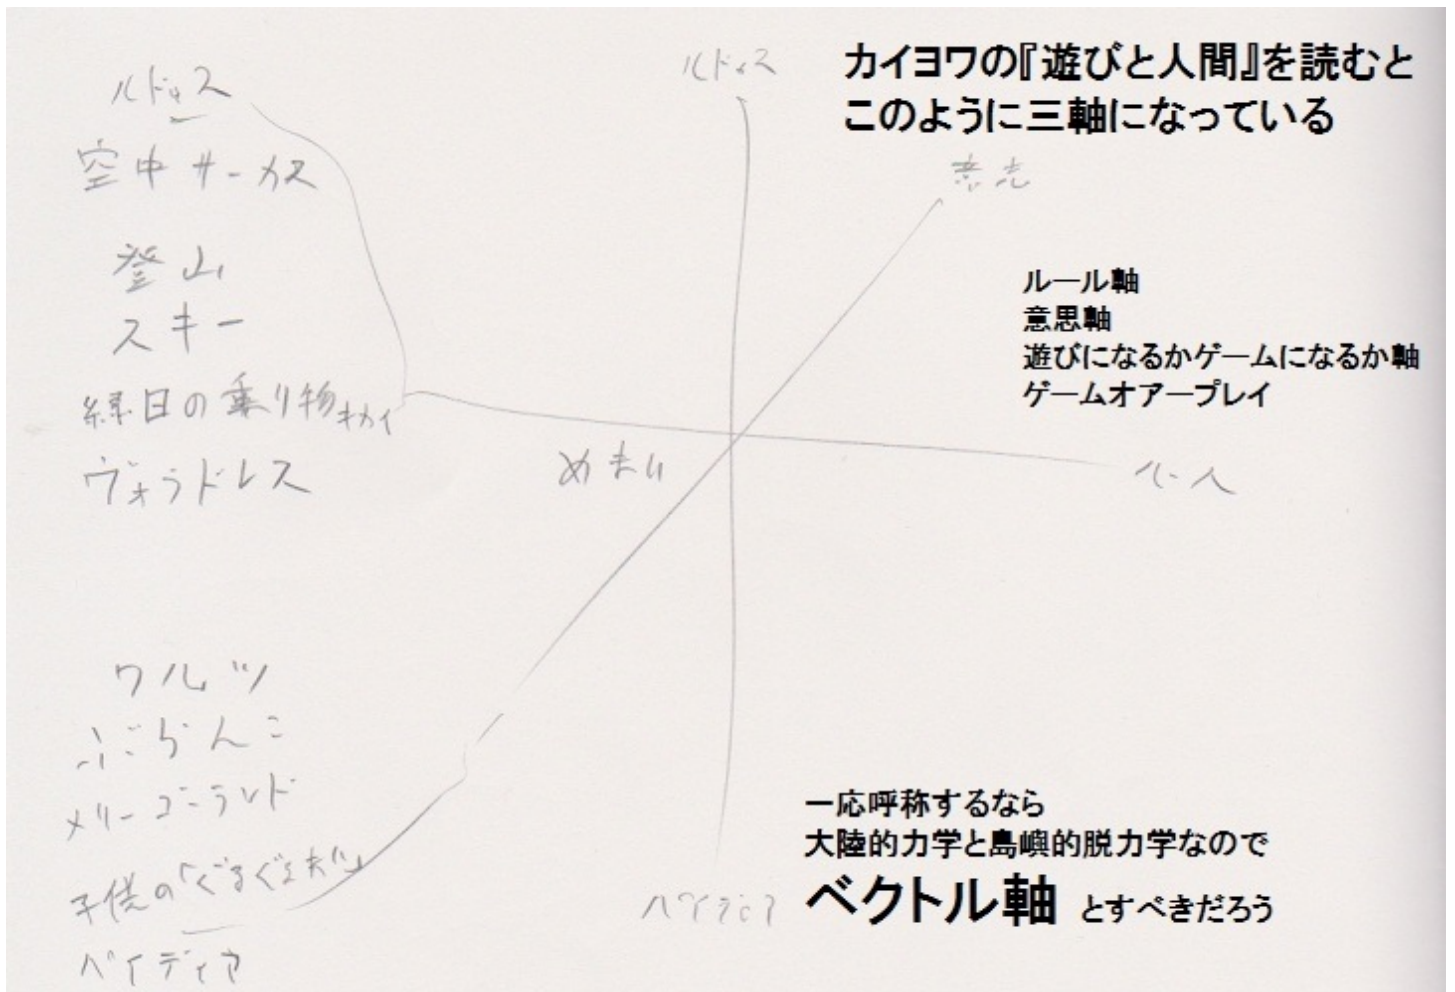 ルドゥス
空中サーカス
登山
スキー
縁日の乗り物キカイ
ヴォラドレス
ワルツ
ぶらんこ
メリーゴーランド
子供の「ぐるぐるまい」
パイディア
ルドゥス
意志
めまい
パイディア
カイヨワの『遊びと人間』を読むと
このように三軸になっている
ルール軸
意思軸
遊びになるかゲームになるか軸
ゲームオアープレイ
一応呼称するなら
大陸的力学と島嶼的脱力学なので
ベクトル軸 とすべきだろう